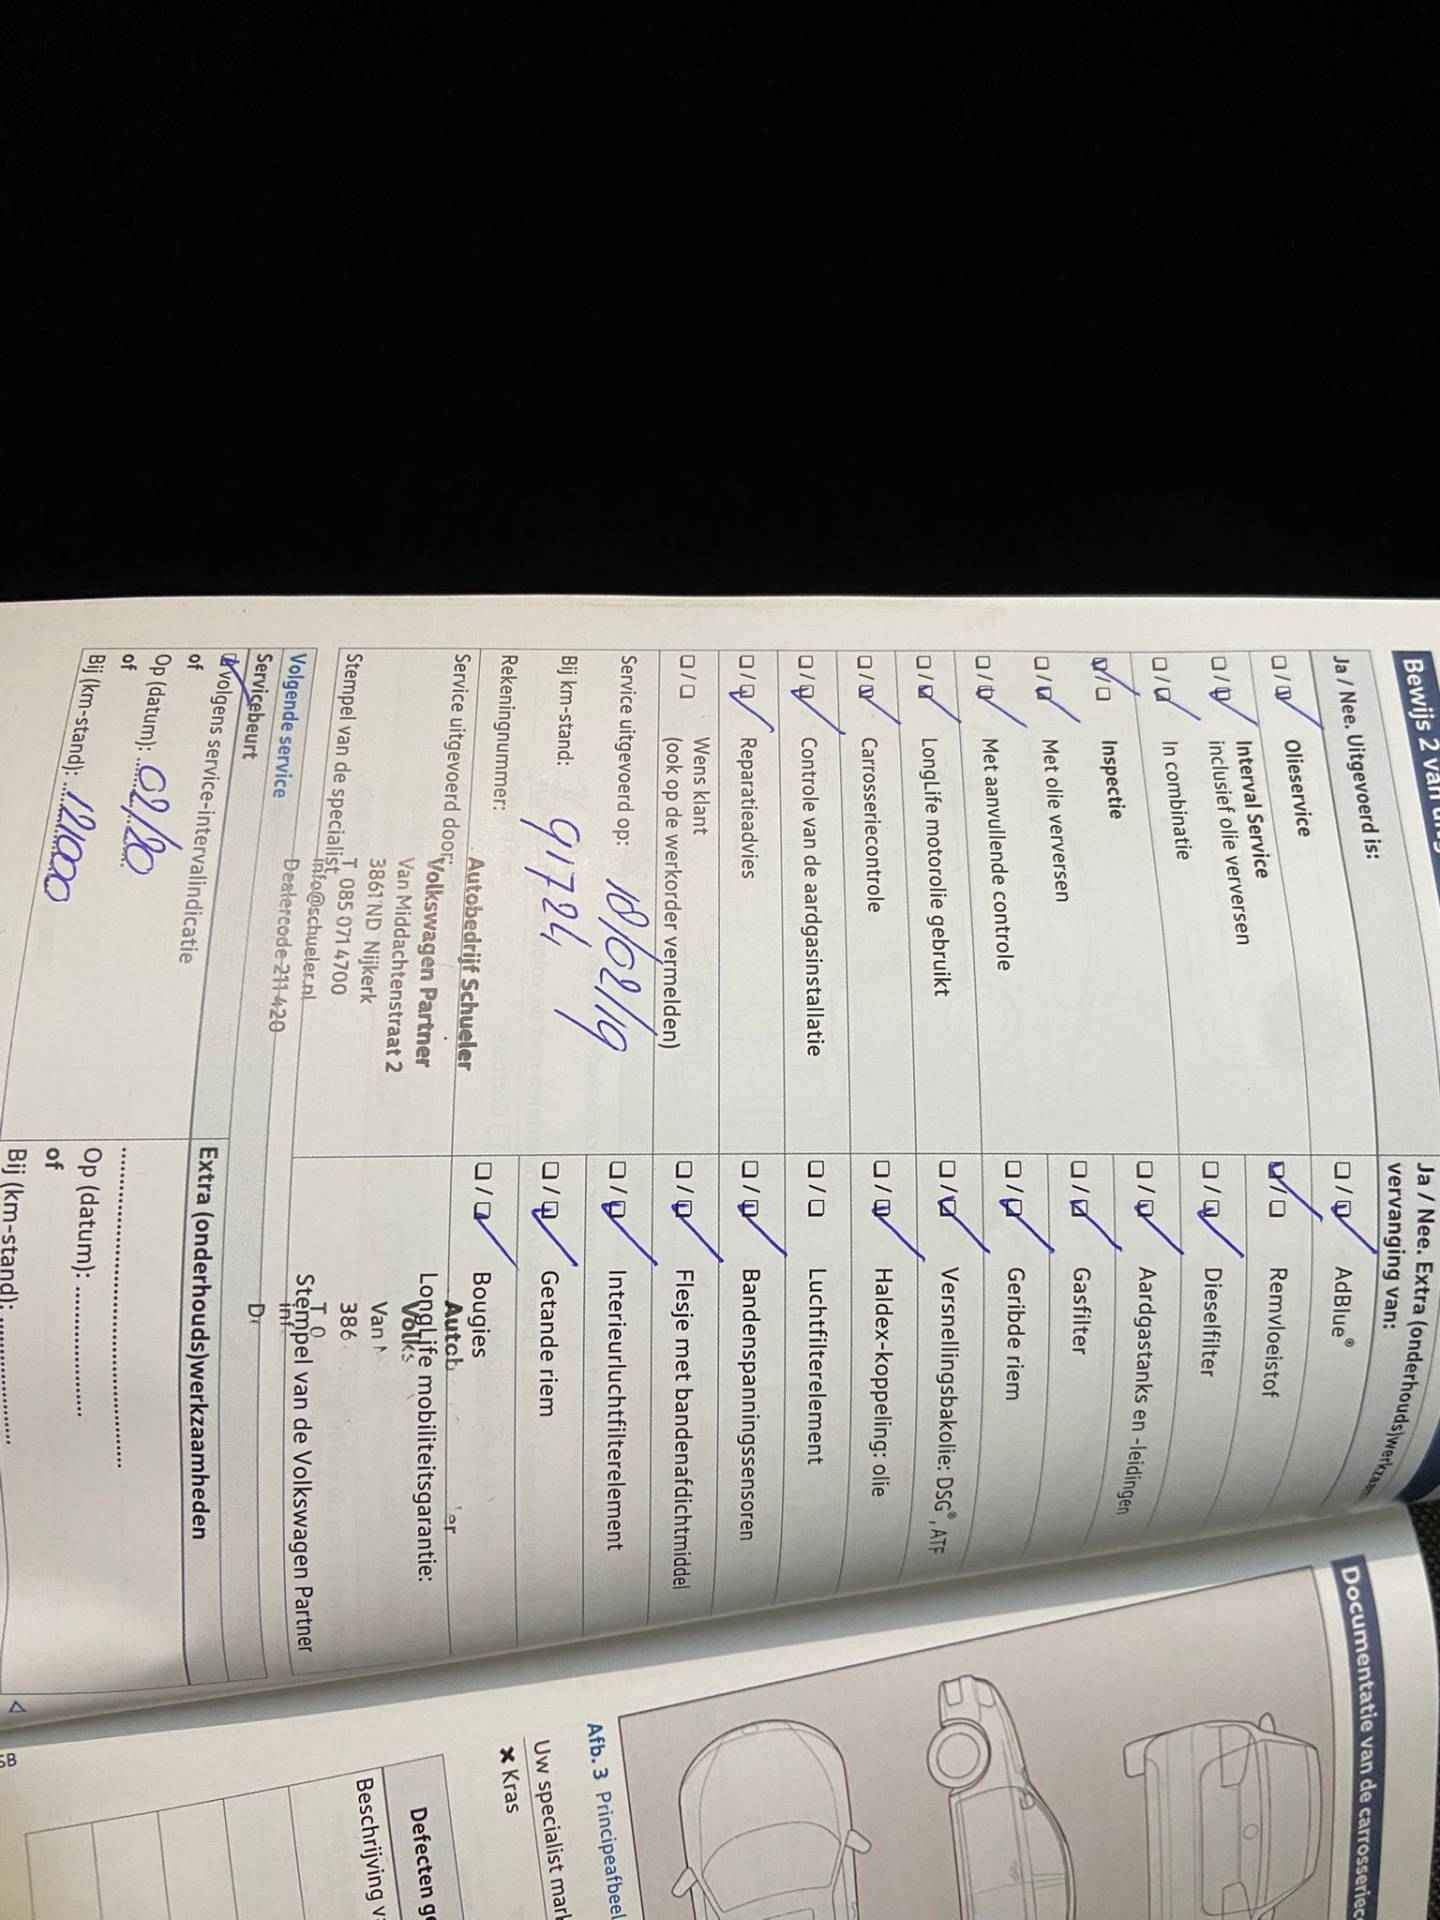 Bewijs 2 van
Ja / Nee. Uitgevoerd is:
☐ / ☑ Olieservice
☐ / ☑ Interval Service
inclusief olie verversen
☐ / ☑ In combinatie
☑ / ☐ Inspectie
☐ / ☑ Met olie verversen
☐ / ☑ Met aanvullende controle
☐ / ☑ LongLife motorolie gebruikt
☐ / ☑ Carrosseriecontrole
☐ / ☑ Controle van de aardgasinstallatie
☐ / ☑ Reparatieadvies
☐ / ☐ Wens klant
(ook op de werkorder vermelden)
Service uitgevoerd op: 18/02/19
Bij km-stand: 91724
Rekeningnummer:
Service uitgevoerd door:
Autobedrijf Schueler
Volkswagen Partner
Van Middachtenstraat 2
3861 ND Nijkerk
T 085 071 4700
info@schueler.nl
Dealercode 211 420
Stempel van de specialist
Volgende service
Servicebeurt
☑ volgens service-intervalindicatie
of
Op (datum): 02/20
of
Bij (km-stand): 121000
Ja / Nee. Extra (onderhouds)werkzaam
vervanging van:
☐ / ☑ AdBlue®
☑ / ☐ Remvloeistof
☐ / ☑ Dieselfilter
☐ / ☑ Aardgastanks en -leidingen
☐ / ☑ Gasfilter
☐ / ☑ Geribde riem
☐ / ☑ Versnellingsbakolie: DSG®, ATF
☐ / ☑ Haldex-koppeling: olie
☐ / ☐ Luchtfilterelement
☐ / ☑ Bandenspanningssensoren
☐ / ☑ Flesje met bandenafdichtmiddel
☐ / ☑ Interieurluchtfilterelement
☐ / ☑ Getande riem
☐ / ☑ Bougies
LongLife mobiliteitsgarantie:
Autob
Volks
Van
386
T 0
inf
Stempel van de Volkswagen Partner
Extra (onderhouds)werkzaamheden
Op (datum):
of
Bij (km-stand):
Documentatie van de carrosseriec
Afb. 3 Principeafbeel
Uw specialist mar
✖ Kras
Defecten g
Beschrijving v